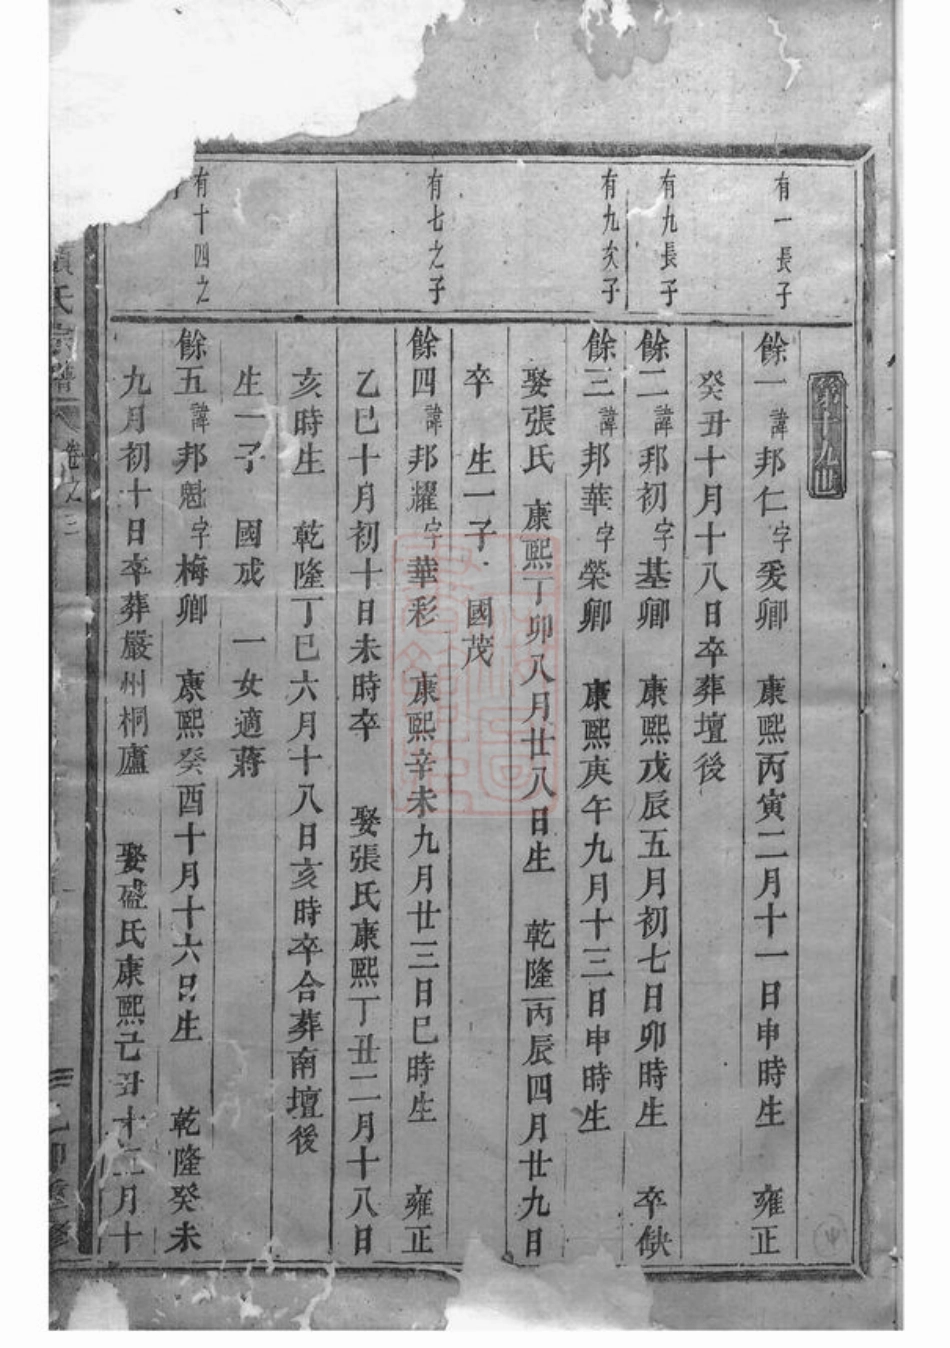 第十九世
有一長子
餘一諱邦仁字爰卿　康熙丙寅二月十一日申時生　雍正
癸丑十月十八日卒葬壇後
有九長子
餘二諱邦初字基卿　康熙戊辰五月初七日卯時生　卒缺
有九次子
餘三諱邦華字榮卿　康熙庚午九月十三日申時生
娶張氏　康熙丁卯八月廿八日生　乾隆丙辰四月廿九日
卒　生一子　國茂
有七之子
餘四諱邦耀字華彩　康熙辛未九月廿三日巳時生　雍正
乙巳十月初十日未時卒　娶張氏康熙丁丑二月十八日
亥時生　乾隆丁巳六月十八日亥時卒合葬南壇後
生一子　國成　一女適蔣
有十四之
餘五諱邦魁字梅卿　康熙癸酉十月十六日生　乾隆癸未
九月初十日卒葬嚴州桐廬　娶盛氏康熙己丑十二月十
氏宗譜　卷之二